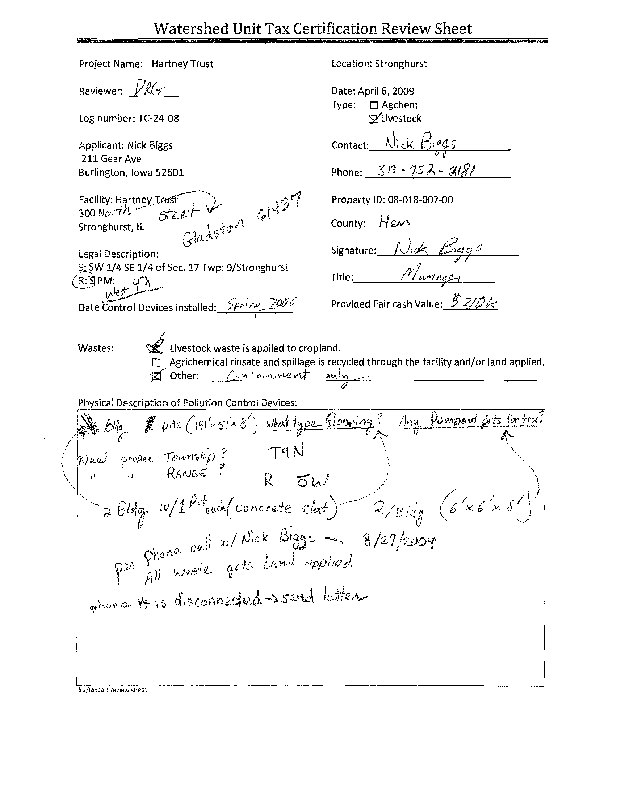 Watershed Unit Tax Certification Review Sheet
Project Name: Hartney Trust
Location: Stronghurst
Reviewer:
Date: April 6, 2009
Type: Agchem
Livestock
Log number: TC-24-08
Applicant: Nick Biggs
211 Gear Ave
Burlington, Iowa 52601
Contact: Nick Biggs
Phone: 319-752-
Facility: Hartney Trust
300 North
Stronghurst, IL
Gladston
Property ID: 08-018-007-00
County: Hens
Legal Description:
S: SW 1/4 SE 1/4 of Sec. 17 Twp: 9/Stronghurst
R: 5 PM: 4th
West
Signature: Nick Biggs
Title: Manager
Date Control Devices installed: Spring
Provided Fair cash Value: $
Wastes: Livestock waste is applied to cropland.
Agrichemical rinsate and spillage is recycled through the facility and/or land applied.
Other: Containment only
Physical Description of Pollution Control Devices:
Bldg pits What type flooring? Any Pumpout pits for tax?
Need proper Township? T9N
" " RANGE? R 5W
2 Bldg w/1 Pit each (concrete slat) 2/Bldg (6'x6'x8')
per phone call w/ Nick Biggs 8/27/2009
All waste gets land applied
phone # is disconnected → send letter